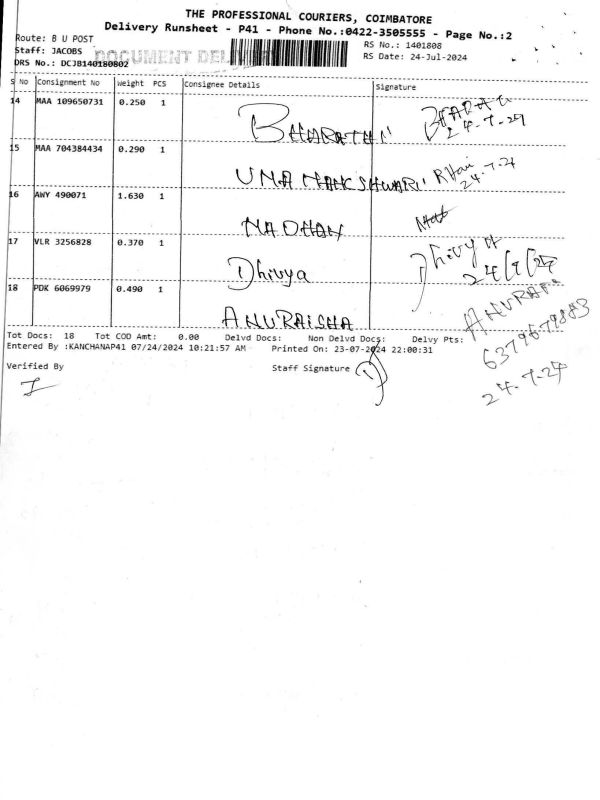 THE PROFESSIONAL COURIERS, COIMBATORE
Delivery Runsheet - P41 - Phone No.:0422-3505555 - Page No.:2
Route: B U POST
RS No.: 1401808
Staff: JACOBS
DOCUMENT DEL
RS Date: 24-Jul-2024
DRS No.: DCJB140180802
S No Consignment No Weight PCS Consignee Details Signature
14 MAA 109650731 0.250 1 BHARATHI
24.7.24
15 MAA 704384434 0.290 1 UMA 24.7.24
16 AWY 490071 1.630 1 MADHAN
17 VLR 3256828 0.370 1 Dhivya Dhivya
24/7/24
18 PDK 6069979 0.490 1 ANURAISHA
6379679883
24.7.24
Tot Docs: 18 Tot COD Amt: 0.00 Delvd Docs: Non Delvd Docs: Delvy Pts:
Entered By :KANCHANAP41 07/24/2024 10:21:57 AM Printed On: 23-07-2024 22:00:31
Verified By Staff Signature